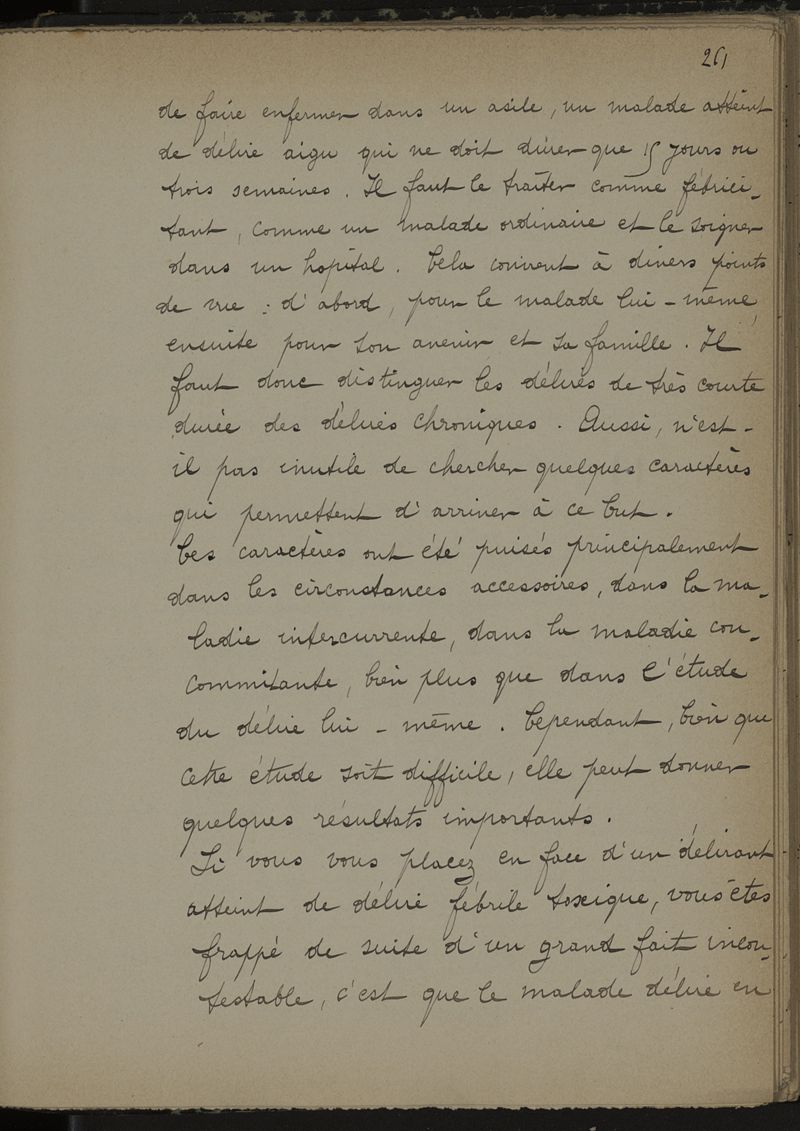 261
de faire enfermer dans un asile, un malade atteint
de délire aigu qui ne doit durer que 15 jours ou
trois semaines. Il faut le traiter comme fébrici-
tant, comme un malade ordinaire et le soigner
dans un hopital. Cela convient à divers points
de vue : d'abord, pour le malade lui-même,
ensuite pour son avenir et sa famille. Il
faut donc distinguer les délires de très courte
durée des délires chroniques. Aussi, n'est-
il pas inutile de chercher quelques caractères
qui permettent d'arriver à ce but.
Ces caractères ont été puisés principalement
dans les circonstances accessoires, dans la ma-
ladie intercurrente, dans la maladie con-
commitante, bien plus que dans l'étude
du délire lui-même. Cependant, bien que
cette étude soit difficile, elle peut donner
quelques résultats importants.
Si vous vous placez en face d'un délirant
atteint de délire fébrile toxique, vous êtes
frappé de suite d'un grand fait incon-
testable, c'est que le malade délire en